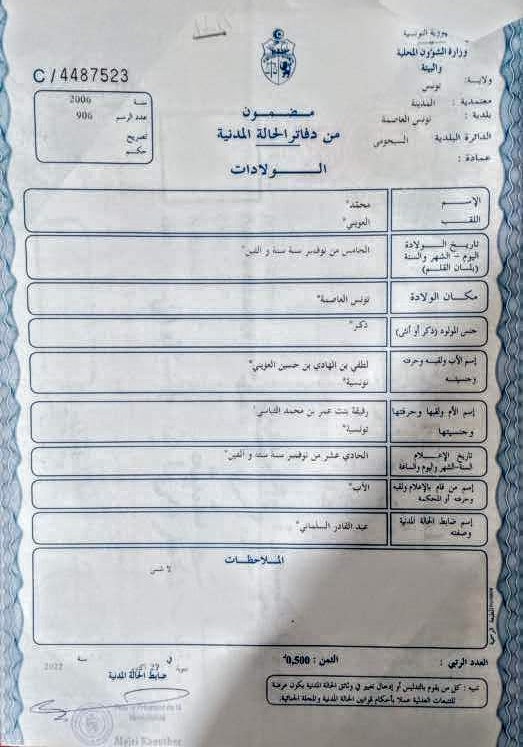 الجمهورية التونسية
وزارة الشؤون المحلية
والبيئة
ولاية: تونس
معتمدية : المدينة
بلدية : تونس العاصمة
الدائرة البلدية السيجومي
عمادة :
C/4487523
سنة 2006
عدد الرسم 906
تصريح
حكم
مضمون
من دفاتر الحالة المدنية
الولادات
الإسم محمد"
اللقب العويني"
تاريخ الولادة
اليوم - الشهر والسنة
(بلسان القلم)
الخامس من نوفمبر سنة ستة و الفين"
مكان الولادة تونس العاصمة"
جنس المولود (ذكر أو أنثى) ذكر"
إسم الأب ولقبه وحرفته لطفي بن الهادي بن حسين العويني"
وجنسيته تونسية"
إسم الأم ولقبها وحرفتها رفيقة بنت عمر بن محمد
وجنسيتها تونسية"
تاريخ الإعلام الحادي عشر من نوفمبر سنة ستة و الفين"
السنة-الشهر واليوم والساعة
إسم من قام بالإعلام ولقبه الأب"
وحرفته أو المحكمة
إسم ضابط الحالة المدنية عبد القادر السلماني"
وصفته
الملاحظات
لا شيء
العدد الرتبي :
الثمن : 0,500د
في 27
سنة 2022
ضابط الحالة المدنية
تنبيه : كل من يقوم بالتدليس أو إدخال تغيير في وثائق الحالة المدنية يكون عرضة
للتتبعات العدلية عملا بأحكام قوانين الحالة المدنية والمجلة الجنائية.
Mejri Kaouther